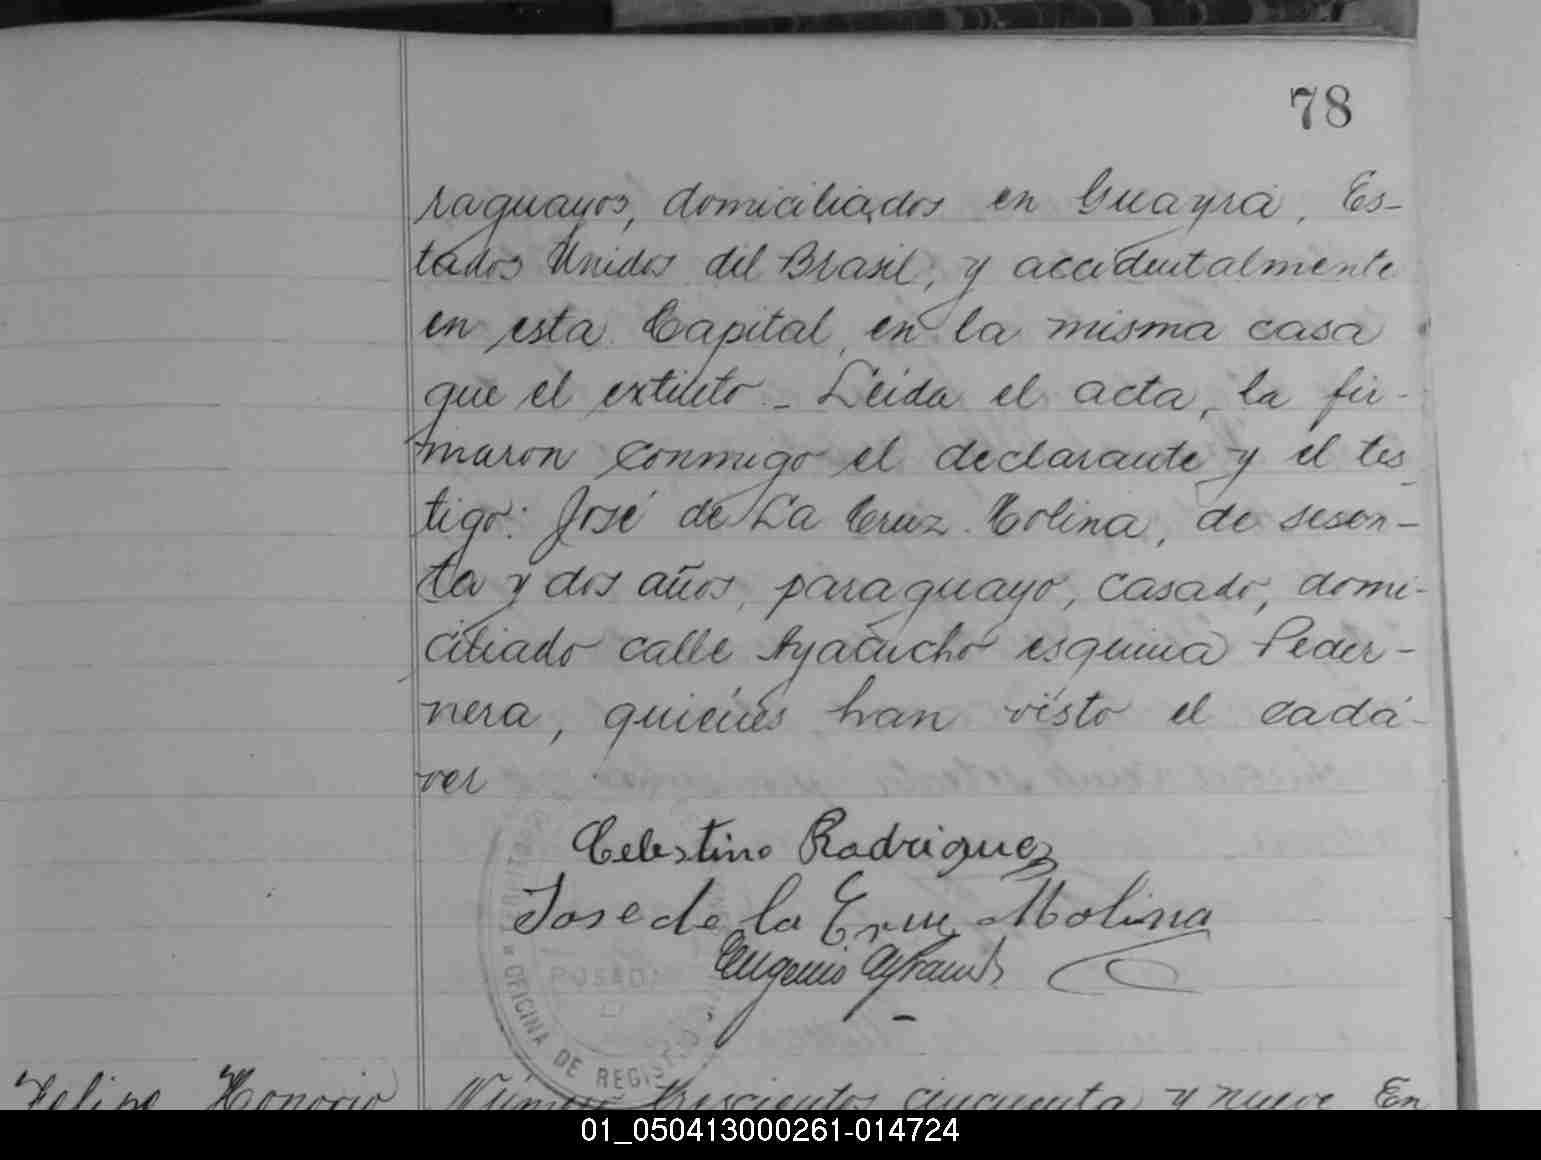 78
raguayos, domiciliados en Guayrá, Es-
tados Unidos del Brasil, y accidentalmente
en esta Capital, en la misma casa
que el extinto - Leida el acta, la fir-
maron conmigo el declarante y el tes-
tigo: José de La Cruz Colina, de sesen-
ta y dos años, paraguayo, casado, domi-
ciliado calle Ayacucho esquina Peder-
nera, quienes han visto el cadá-
ver
Celestino Rodriguez
Jose de la Cruz Molina
Eugenio
POSADAS
OFICINA DE REGISTRO
Felipe Honorio
Número Trescientos cincuenta y nueve En
01_050413000261-014724